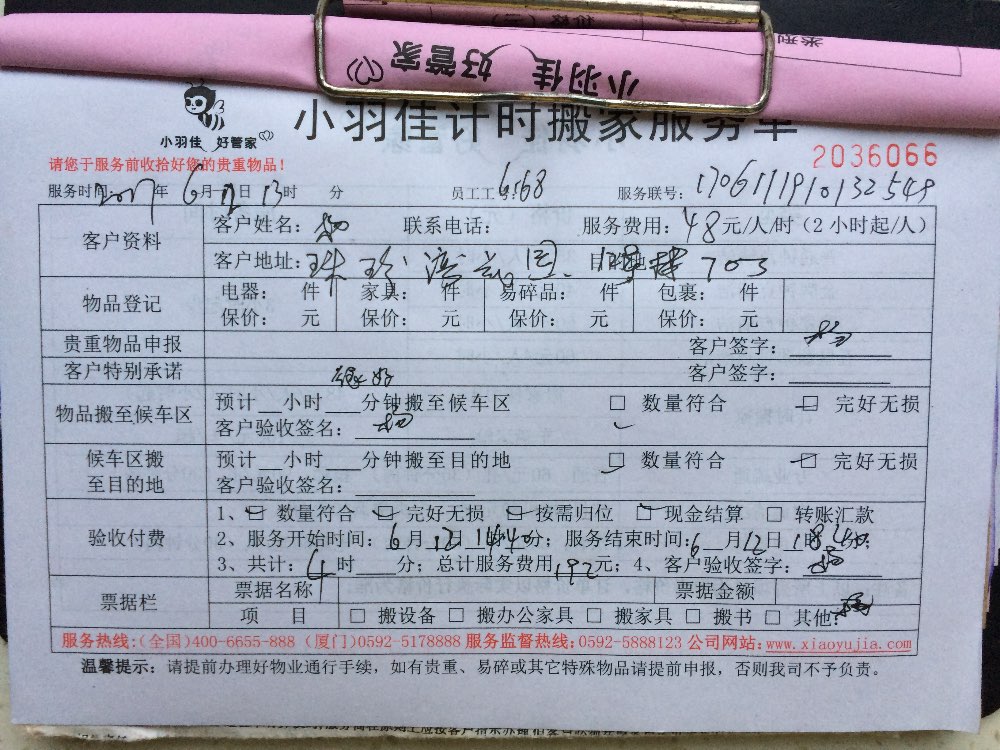 小羽佳 好管家
类型
小羽佳 好管家
小羽佳计时搬家服务单
请您于服务前收拾好您的贵重物品！
2036066
服务时间：2017年 6月12日13时 分 员工工号：6568 服务联号：
客户资料 客户姓名：杨 联系电话： 服务费用：48元/人/时（2小时起/人）
客户地址：珠珍湾花园 目的地 703
物品登记 电器： 件 家具： 件 易碎品： 件 包裹： 件
保价： 元 保价： 元 保价： 元 保价： 元
贵重物品申报 客户签字：杨
客户特别承诺 很好 客户签字：
物品搬至候车区 预计__小时___分钟搬至候车区 □ 数量符合 □ 完好无损
客户验收签名：杨
候车区搬至目的地 预计__小时___分钟搬至目的地 □ 数量符合 □ 完好无损
客户验收签名：
验收付费 1、□ 数量符合 □ 完好无损 □ 按需归位 □ 现金结算 □ 转账汇款
2、服务开始时间：6月12日14时40分；服务结束时间：6月12日18时40分；
3、共计：4时___分；总计服务费用192元；4、客户验收签字：杨
票据栏 票据名称 票据金额
项 目 □ 搬设备 □ 搬办公家具 □ 搬家具 □ 搬书 □ 其他：
服务热线：(全国)400-6655-888 (厦门)0592-5178888 服务监督热线：0592-5888123 公司网站：www.xiaoyujia.com
温馨提示：请提前办理好物业通行手续，如有贵重、易碎或其它特殊物品请提前申报，否则我司不予负责。